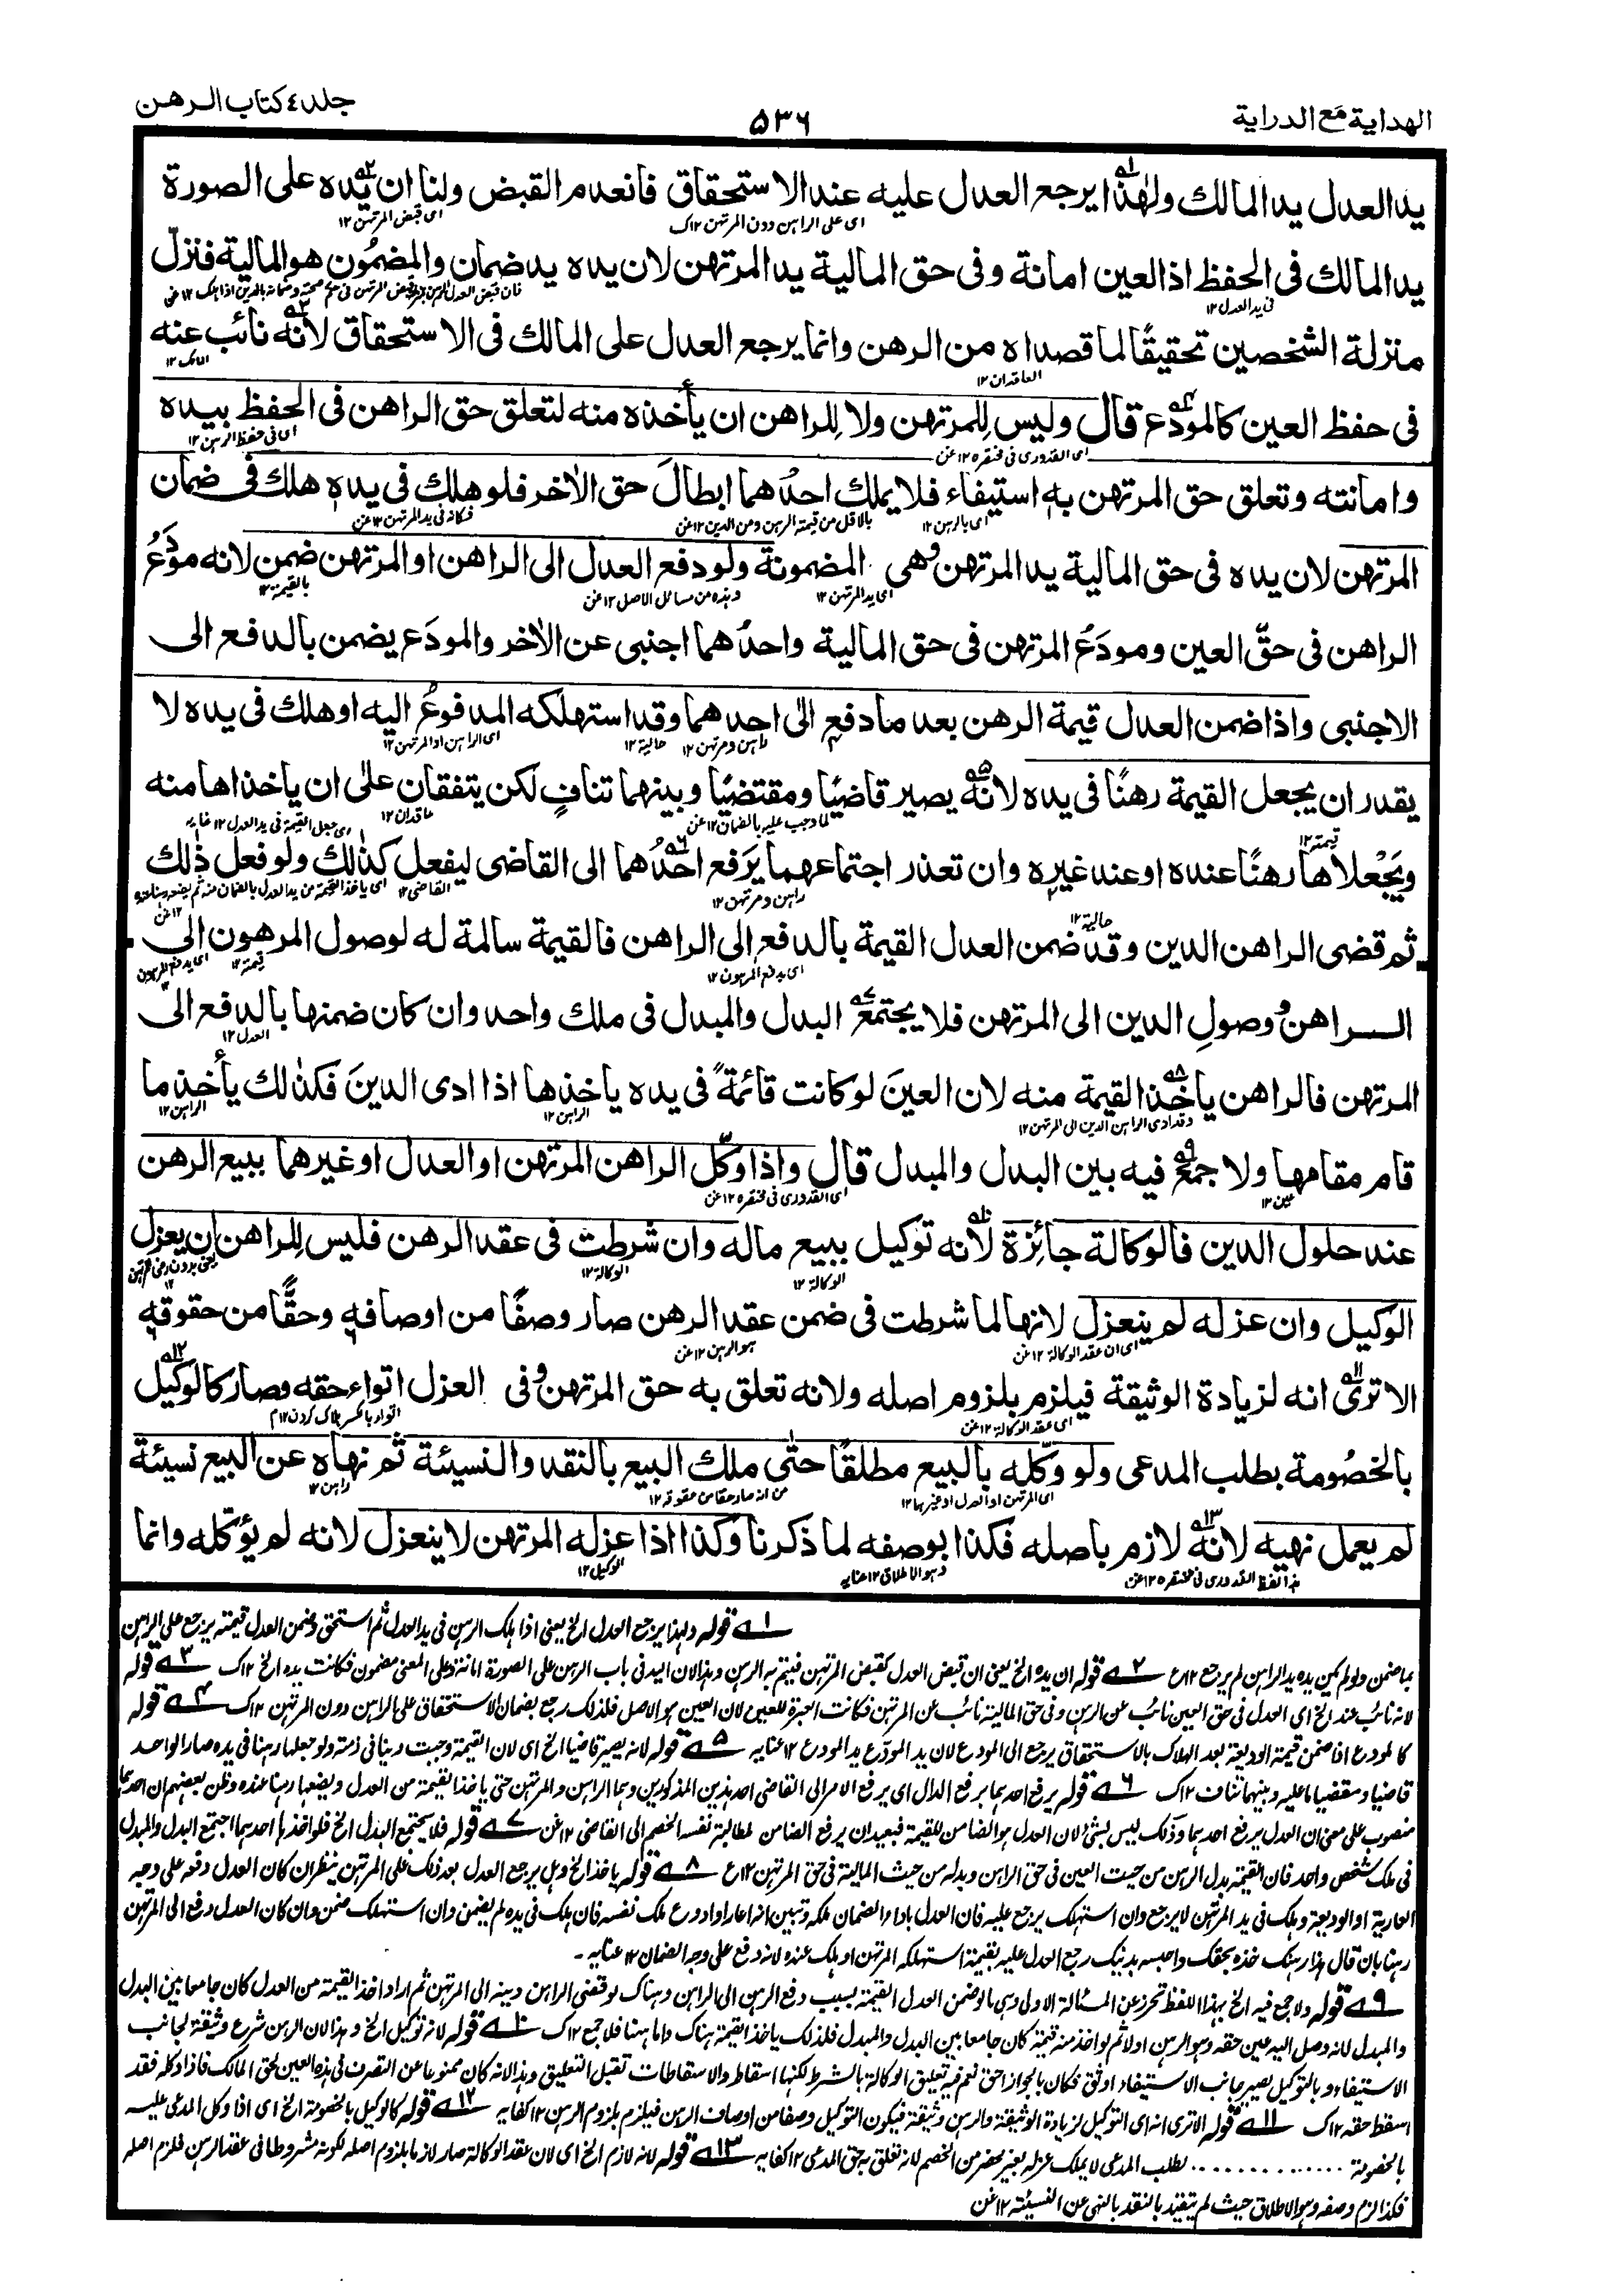 الهداية مع الدراية
٥٣٦
جلد ٤ كتاب الرهن
يد العدل يد المالك ولهذا يرجع العدل عليه عند الاستحقاق فانعدم القبض ولنا ان يده على الصورة
اى على الراهن دون المرتهن ١٢ک
اى قبض المرتهن ١٢
يد المالك فى الحفظ اذ العين امانة وفى حق المالية يد المرتهن لان يده يد ضمان والمضمون هو المالية فنزل
فى يد العدل ١٢
منزلة الشخصين تحقيقًا لما قصداه من الرهن وانما يرجع العدل على المالك فى الاستحقاق لانه نائب عنه
العاقدان ١٢
المالک ١٢
فى حفظ العين كالمودَع قال وليس للمرتهن ولا للراهن ان يأخذه منه لتعلق حق الراهن فى الحفظ بيده
اى القدورى فى مختصره ١٢عن
اى فى حفظ الرهن ١٢
وامانته وتعلق حق المرتهن به استيفاء فلا يملك احدُهما ابطالَ حق الاٰخر فلو هلك فى يده هلك فى ضمان
اى بالرهن ١٢
بالاقل من قيمة الرهن ومن الدين ١٢عن
فكانه فى يد المرتهن ١٢عن
المرتهن لان يده فى حق المالية يد المرتهن وهى المضمونة ولو دفع العدل الى الراهن او المرتهن ضمن لانه مودَعُ
اى يد المرتهن ١٢
وهذه من مسائل الاصل ١٢عن
بالقيمة ١٢
الراهن فى حقّ العين ومودَعُ المرتهن فى حق المالية واحدُهما اجنبى عن الاٰخر والمودَع يضمن بالدفع الى
الاجنبى واذا ضمن العدل قيمة الرهن بعد ما دفع الى احدهما وقد استهلكه المدفوعُ اليه او هلك فى يده لا
راهن ومرتهن ١٢
حالية ١٢
اى الراهن او المرتهن ١٢
يقدر ان يجعل القيمة رهنًا فى يده لانه يصير قاضيًا ومقتضيًا وبينهما تنافٍ لكن يتفقان علىٰ ان ياخذاها منه
لما وجب عليه بالضمان ١٢عن
عاقدان ١٢
قيمة ١٢
اى جعل القيمة فى يد العدل ١٢
ويَجْعلاها رهنًا عنده او عند غيره وان تعذر اجتماعهما يَرفع احدُهما الى القاضى ليفعل كذٰلك ولو فعل ذٰلك
راهن ومرتهن ١٢
القاضى ١٢
حالية ١٢
ثم قضى الراهن الدين وقد ضمن العدل القيمة بالدفع الى الراهن فالقيمة سالمة له لوصول المرهون الى
اى بدفع المرهون ١٢
قيمة ١٢
الراهن ووصولِ الدين الى المرتهن فلا يجتمع البدل والمبدل فى ملك واحد وان كان ضمنها بالدفع الى
العدل ١٢
المرتهن فالراهن ياخذ القيمة منه لان العينَ لو كانت قائمة فى يده ياخذها اذا ادى الدينَ فكذٰلك يأخذ ما
وقد ادى الراهن الدين الى المرتهن ١٢
الراهن ١٢
الراهن ١٢
قام مقامها ولا جمع فيه بين البدل والمبدل قال واذا وكّل الراهن المرتهن او العدل او غيرهما ببيع الرهن
عين ١٢
اى القدورى فى مختصره ١٢عن
عند حلول الدين فالوكالة جائزة لانه توكيل ببيع ماله وان شرطت فى عقد الرهن فليس للراهن ان يعزل
الوكالة ١٢
الوكالة ١٢
الوكيل وان عزله لم ينعزل لانها لما شرطت فى ضمن عقد الرهن صار وصفًا من اوصافه وحقًّا من حقوقه
اى ان عقد الوكالة ١٢عن
هو الرهن ١٢عن
الا ترىٰ انه لزيادة الوثيقة فيلزم بلزوم اصله ولانه تعلق به حق المرتهن وفى العزل اتواء حقه وصار كالوكيل
اى عقد الوكالة ١٢عن
اتواء بالكسر ہلاک کردن ١٢م
بالخصومة بطلب المدعى ولو وكّله بالبيع مطلقًا حتٰى ملك البيع بالنقد والنسيئة ثم نهاه عن البيع نسيئة
اى المرتهن او العدل او غيرهما ١٢
من انه صار حقا من حقوقه ١٢
راهن ١٢
لم يعمل نهيه لانه لازم بأصله فكذا بوصفه لما ذكرنا وكذا اذا عزله المرتهن لا ينعزل لانه لم يؤكّله وانما
هذا لفظ القدورى فى مختصره ١٢عن
وهو الاطلاق ١٢عنايه
الوكيل ١٢
١ قوله ولهذا يرجع العدل الخ يعنى اذا هلك الرهن فى يد العدل ثم استحق وضمن العدل قيمته يرجع على الراهن
بما ضمن ولو لم يكن يده يد الراهن لم يرجع ١٢ع ٢ قوله ان يده الخ يعنى ان قبض العدل كقبض المرتهن فيتم به الرهن وهذا لان اليد فى باب الرهن على الصورة امانة وعلى المعنى مضمون فكانت يده الخ ١٢ک ٣ قوله
لانه نائب عنه الخ اى العدل فى حق العين نائب عن الراهن وفى حق المالية نائب عن المرتهن فكانت العبرة للعين لان العين هو الاصل فلذلك رجع بضمان الاستحقاق على الراهن دون المرتهن ١٢ک ٤ قوله
كالمودع اذا ضمن قيمة الوديعة بعد الهلاك بالاستحقاق يرجع الى المودع لان يد المودَع يد المودع ١٢عنايه ٥ قوله لانه يصير قاضيا الخ اى لان القيمة وجبت دينا فى ذمته ولو جعلها رهنا فى يده صار الواحد
قاضيا ومقتضيا ما عليه وبينهما تناف ١٢ک ٦ قوله يرفع احدهما برفع الدال اى يرفع الامر الى القاضى احد هذين المذكورين وهما الراهن والمرتهن حتى ياخذ القيمة من العدل ويضعها رهنا عنده وظن بعضهم ان احدهما
منصوب على معنى ان العدل يرفع احدهما وذلك ليس بشئ لان العدل هو الضامن للقيمة فبعيد ان يرفع الضامن لمطالبة نفسه الخصم الى القاضى ١٢عن ٧ قوله فلا يجتمع البدل الخ فلو اخذها احدهما اجتمع البدل والمبدل
فى ملك شخص واحد فان القيمة بدل الرهن من حيث العين فى حق الراهن وبدله من حيث المالية فى حق المرتهن ١٢ع ٨ قوله ياخذ الخ وهل يرجع العدل بعد ذلك على المرتهن ينظر ان كان العدل دفعه على وجه
العارية او الوديعة وهلك فى يد المرتهن لا يرجع وان استهلك يرجع عليه فان العدل باداء الضمان ملكه وتبين انه اعار او اودع ملك نفسه فان هلك فى يده لم يضمن وان استهلك ضمن وان كان العدل دفع الى المرتهن
رهنا بان قال هذا رهنك خذه بحقك واحبسه بدينك رجع العدل عليه بقيمته استهلكه المرتهن او هلك عنده لانه دفع على وجه الضمان ١٢ عنايه ۔
٩ قوله ولا جمع فيه الخ بهذا اللفظ تحرز عن المسئالة الاولى وهى ما لو ضمن العدل القيمة بسبب دفع الرهن الى الراهن وهناك لو قضى الراهن دينه الى المرتهن ثم اراد اخذ القيمة من العدل كان جامعا بين البدل
والمبدل لانه وصل اليه عين حقه وهو الرهن اولا ثم لو اخذ منه قيمته كان جامعا بين البدل والمبدل فلذلك ياخذ القيمة هناك واما ههنا فلا جمع ١٢ک ١٠ قوله لانه توكيل الخ وهذا لان الرهن شرع وثيقة لجانب
الاستيفاء وبالتوكيل يصير جانب الاستيفاء اوثق فكان بالجواز احق ثم فيه تعليق الوكالة بالشرط لكنها اسقاط والاسقاطات تقبل التعليق وهذا لانه كان ممنوعا عن التصرف فى هذه العين لحق المالك فاذا وكله فقد
اسقط حقه ١٢ک ١١ قوله الا ترى انه اى التوكيل لزيادة الوثيقة والرهن وثيقة فيكون التوكيل وصفا من اوصاف الرهن فيلزم بلزوم الرهن ١٢ كفايه ١٢ قوله كالوكيل بالخصومة الخ اى اذا وكل المدعى عليه
بالخصومة .............. بطلب المدعى لا يملك عزله بغير محضر من الخصم لانه تعلق به حق المدعى ١٢ كفايه ١٣ قوله لانه لازم الخ اى لان عقد الوكالة صار لازما بلزوم اصله لكونه مشروطا فى عقد الرهن فلزم اصله
فكذا لزم وصفه وهو الاطلاق حيث لم يتقيد بالنقد بالنهى عن النسيئة ١٢عن